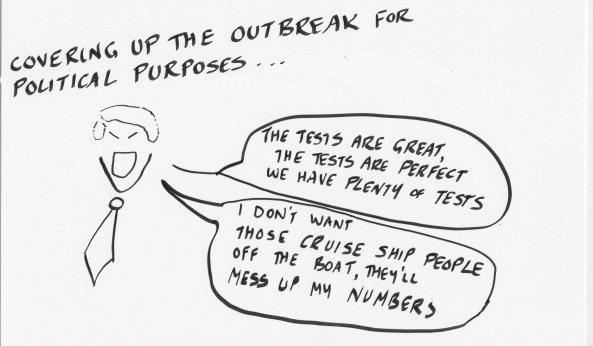 COVERING UP THE OUTBREAK FOR
POLITICAL PURPOSES...
THE TESTS ARE GREAT,
THE TESTS ARE PERFECT
WE HAVE PLENTY OF TESTS
I DON'T WANT
THOSE CRUISE SHIP PEOPLE
OFF THE BOAT, THEY'LL
MESS UP MY NUMBERS